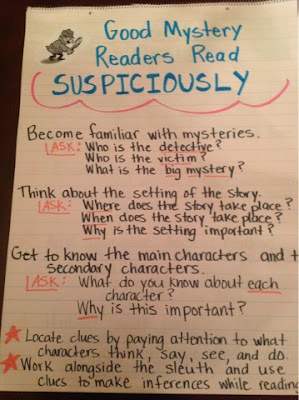 Good Mystery
Readers Read
SUSPICIOUSLY
Become familiar with mysteries.
ASK: Who is the detective?
Who is the victim?
What is the big mystery?
Think about the setting of the story.
ASK: Where does the story take place?
When does the story take place?
Why is the setting important?
Get to know the main characters and
secondary characters.
ASK: What do you know about each
character?
Why is this important?
Locate clues by paying attention to what
characters think, say, see, and do.
Work alongside the sleuth and use
clues to make inferences while reading